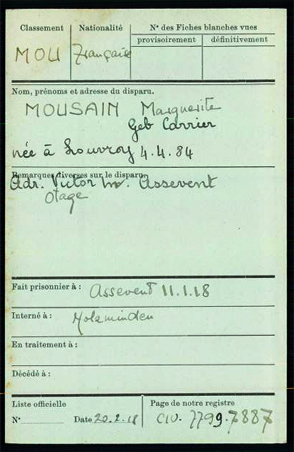 Classement
Nationalité
N° des Fiches blanches vues
provisoirement
définitivement
MOU
Française
Nom, prénoms et adresse du disparu.
MOUSAIN Marguerite
Geb Carrier
née à Louvroy 4.4.84
Remarques diverses sur le disparu.
Adr. Victor Assevent
Otage
Fait prisonnier à : Assevent 11.1.18
Interné à : Holzminden
En traitement à :
Décédé à :
Liste officielle
Page de notre registre
N° Date 20.2.18
Civ. 7799.7887